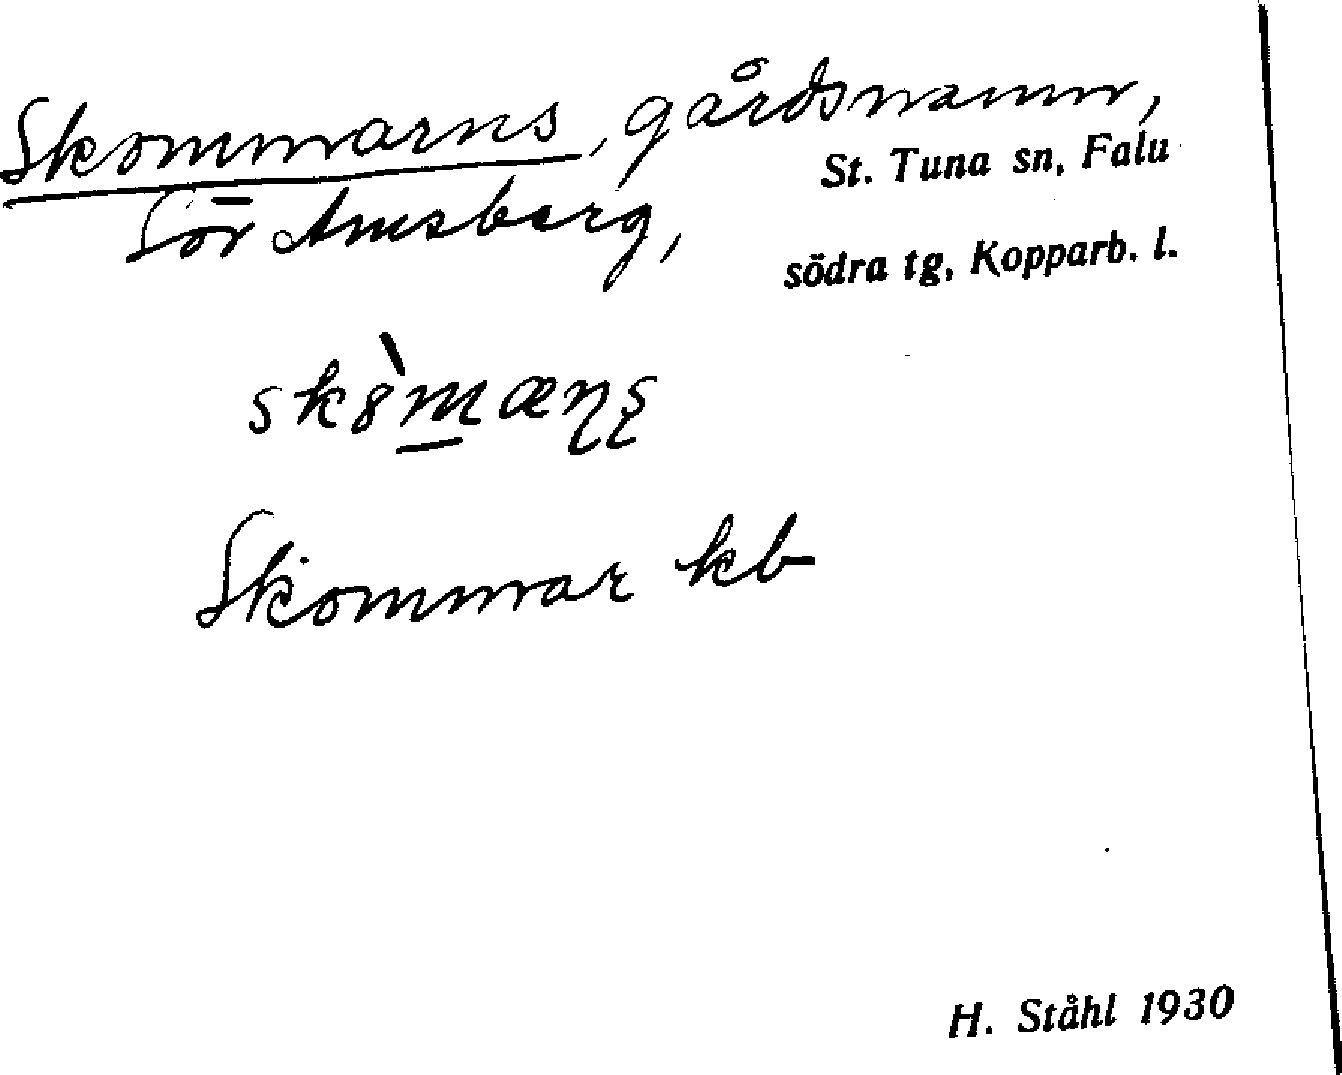 Skommarns, gårdsnamn,
St. Tuna sn, Falu
Sör Amsberg,
södra tg, Kopparb. l.
Skommar kb
H. Ståhl 1930